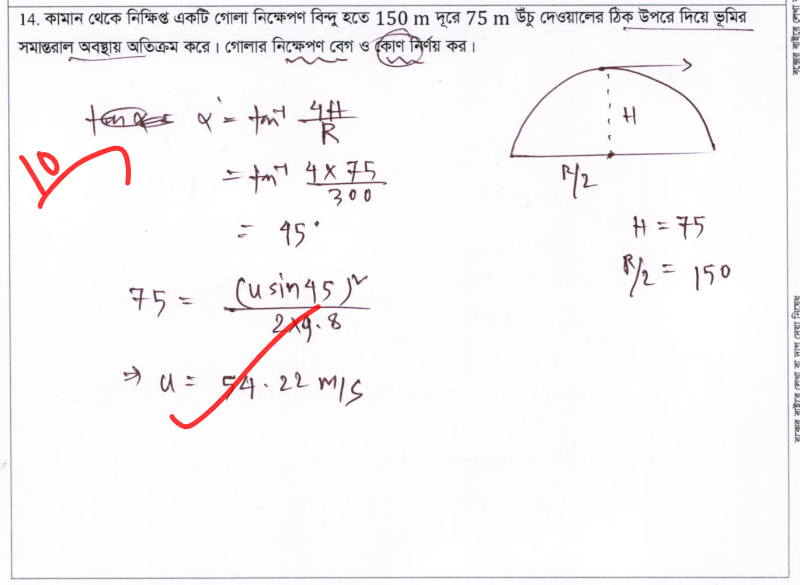 14. কামান থেকে নিক্ষিপ্ত একটি গোলা নিক্ষেপণ বিন্দু হতে 150 m দূরে 75 m উঁচু দেওয়ালের ঠিক উপরে দিয়ে ভূমির
সমান্তরাল অবস্থায় অতিক্রম করে। গোলার নিক্ষেপণ বেগ ও কোণ নির্ণয় কর।
α = tan⁻¹ 4H/R
= tan⁻¹ 4 × 75/300
= 45°
75 = (u sin 45)²/2×9.8
⇒ u = 54.22 m/s
10
H
R/2
H = 75
R/2 = 150